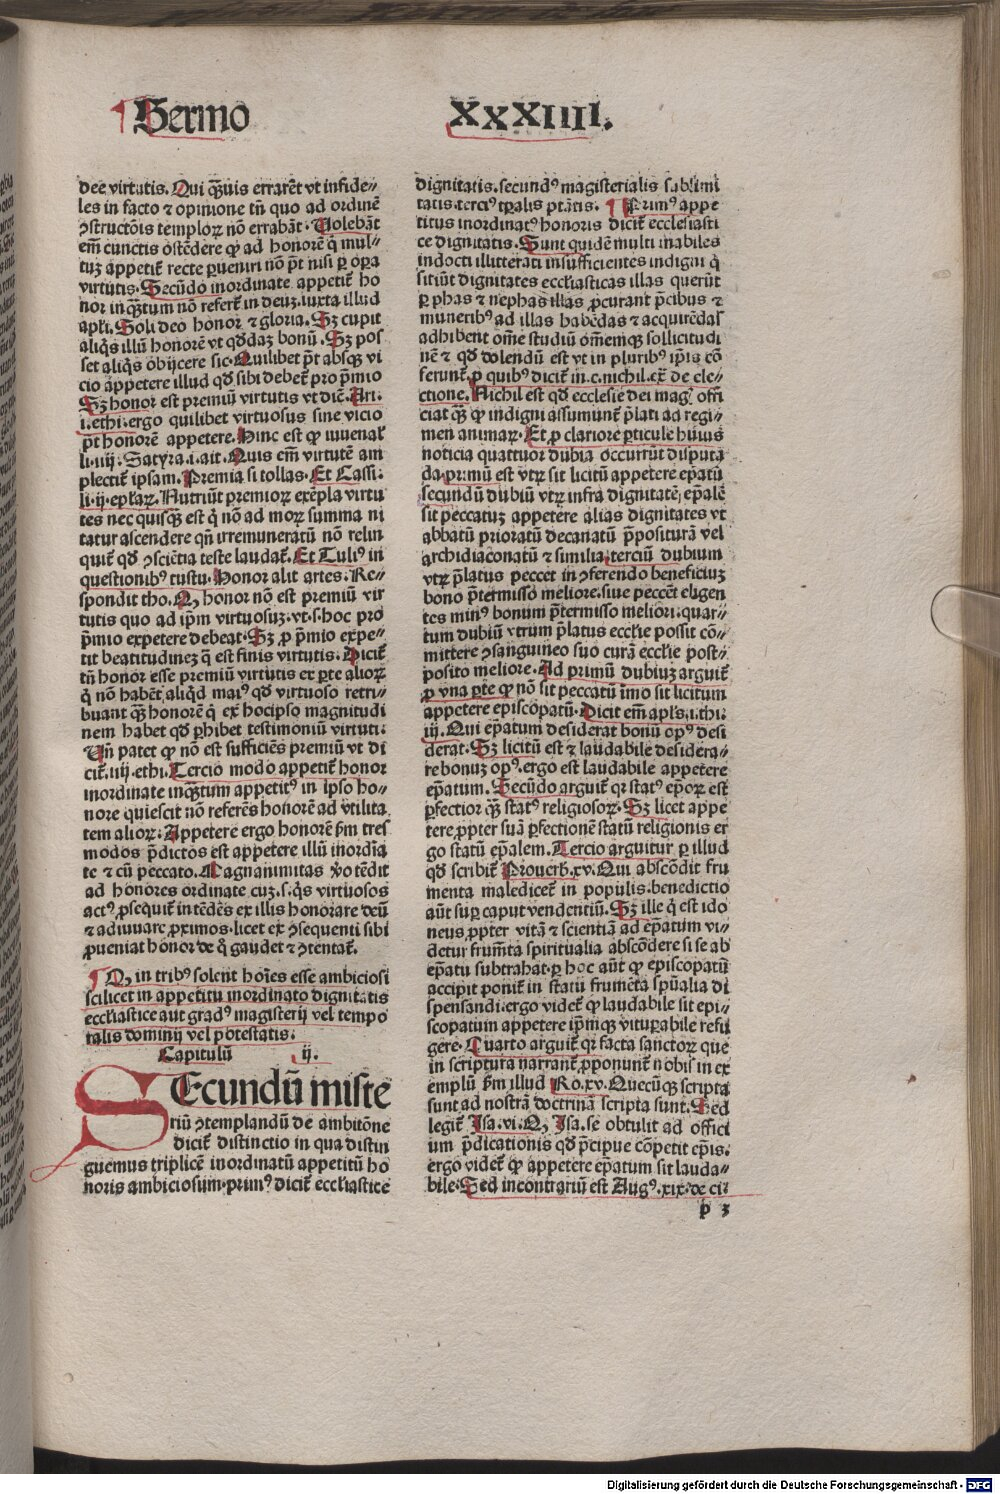 Sermo
XxXIIII.
dee virtutis. Qui q̃uis errarẽt vt infide⸗
les in facto ⁊ opinione tñ quo ad ordinẽ
ꝯstructõis temploꝝ nõ errabãt. Volebãt
em̃ cunctis ostẽdere ꝙ ad honorẽ q̇ mul⸗
tuȝ appetit̃ recte ꝑueniri nõ põt nisi ꝑ oꝑa
virtutis. Secũdo inordinate appetit̃ ho
nor inq̃ꝫtum nõ refert̃ in deuȝ. iuxta illud
apl̃i. Soli deo honor ⁊ gloria. Sȝ cupit
aliq̇s illũ honorẽ vt qđdaȝ bonũ. Sȝ pos
set aliq̇s obijcere sic. Quilibet põt absqȝ vi
cio appetere illud qđ sibi debet̃ pro p̃mio
Sȝ honor est premiũ virtutis vt dic̃. Ari.
i. ethi. ergo quilibet virtuosus sine vicio
põt honorẽ appetere. Hinc est ꝙ iuuenal̃
li. iiij. Satyra. i. ait. Quis em̃ virtutẽ am
plectit̃ ipsam. Premia si tollas. Et Cassi.
li. ij. ep̃laꝝ. Nutriũt premioꝝ exẽpla virtu
tes nec quisqȝ est q̇ nõ ad moꝝ summa ni
tatur ascendere qñ irremuneratũ nõ relin
quit̃ qđ ꝯsciẽtia teste laudat̃. Et Tuliꝰ in
questionibꝰ tustu. Honor alit artes. Re⸗
spondit tho. Q, honor nõ est premiũ vir
tutis quo ad ip̃m virtuosuȝ. vt. s. hoc pro
p̃mio expetere debeat. Sȝ ꝓ p̃mio expe⸗
tit beatitudineȝ q̃ est finis virtutis. Dicit̃
tñ honor esse premiũ virtutis ex ꝑte alioꝝ
q̇ nõ habẽt aliq̇d maiꝰ qđ virtuoso retri⸗
buant q̃ȝ honorẽ q̇ ex hocipso magnitudi
nem habet qđ ꝑhibet testimoniũ virtuti.
Uñ patet ꝙ nõ est sufficiẽs premiũ vt di
cit̃. iiij. ethi. Tercio modo appetit̃ honor
inordinate inq̃ꝫtum appetitꝰ in ipso ho⸗
nore quiescit nõ referẽs honorẽ ad vtilita
tem alioꝝ. Appetere ergo honorẽ ẜm tres
modos p̃dictos est appetere illũ inordĩa
te ⁊ cũ peccato. Magnanimitas ꝟo tẽdit
ad honores ordinate cuȝ. s. q̇s virtuosos
actꝰ ꝓsequit̃ intẽdẽs ex illis honorare deũ
⁊ adiuuare ꝓximos. licet ex ꝯsequenti sibi
ꝓueniat honor de q̇ gaudet ⁊ ꝯtentat̃.
Q, in tribꝰ solent hoĩes esse ambiciosi
scilicet in appetitu inordinato dignitatis
ecclesiastice aut gradꝰ magisterij vel tempo
ralis dominij vel potestatis.
Capitulũ ij.
SEcundũ miste
riũ ꝯtemplandũ de ambitõne
dicit̃ distinctio in qua distin
guemus triplicẽ inordinatũ appetitũ ho
noris ambiciosum. primꝰ dicit̃ ecclesiastice
dignitatis. secundꝰ magisterialis sublimi
tatis. terciꝰ tꝑalis ptãtis. Primꝰ appe
titus inordinatꝰ honoris dicit̃ ecclesiasti
ce dignitatis. Sunt quidẽ multi inabiles
indocti illitterati insufficientes indigni q̇
sitiũt dignitates ecclesiasticas illas querũt
ꝑ phas ⁊ nephas illas ꝓcurant p̃cibus ⁊
muneribꝰ ad illas habẽdas ⁊ acquirẽdas
adhibent om̃e studiũ om̃emqȝ sollicitudi
nẽ ⁊ qđ dolendũ est vt in pluribꝰ ip̃is cõ
ferunt̃. ꝓ quibꝰ dicit̃ in. c. nichil. ex̃ de ele⸗
ctione. Nichil est qđ ecclesie dei magꝭ offi
ciat q̃ȝ ꝙ indigni assumunt̃ p̃lati ad regi⸗
men animaꝝ. Et ꝓ clariore ꝑticule huius
noticia quattuor dubia occurrũt disputã
da. primũ est vtꝝ sit licitũ appetere ep̃atũ
secundũ dubiũ vtꝝ infra dignitatẽ ep̃alẽ
sit peccatuȝ appetere alias dignitates vt
abbatũ prioratũ decanatũ p̃posituraȝ vel
archidiaconatũ ⁊ similia. terciũ dubium
vtꝝ p̃latus peccet in ꝯferendo beneficiuȝ
bono p̃termisso meliore. siue peccẽt eligen
tes minꝰ bonum p̃termisso meliori. quar⸗
tum dubiũ vtrum p̃latus eccl̃ie possit cõ⸗
mittere ꝯsanguineo suo curã eccl̃ie post⸗
posito meliore. Ad primũ dubiuȝ arguit̃
ꝓ vna ꝑte ꝙ nõ sit peccatũ ĩmo sit licitum
appetere episcopatũ. Dicit em̃ apl̃s. i. thi.
iij. Qui ep̃atum desiderat bonũ opꝰ desi
derat. Sȝ licitũ est ⁊ laudabile desidera⸗
re bonuȝ opꝰ. ergo est laudabile appetere
ep̃atum. Secũdo arguit̃ qꝛ statꝰ ep̃oꝝ est
ꝑfectior q̃ȝ statꝰ religiosoꝝ. Sȝ licet appe
tere ꝓpter suã ꝑfectionẽ statũ religionis er
go statũ ep̃alem. Tercio arguitur ꝑ illud
qđ scribit̃ Prouerb. xv. Qui abscõdit fru
menta maledicet̃ in populis. benedictio
aũt suꝑ caput vendentiũ. Sȝ ille q̇ est ido
neus ꝓpter vitã ⁊ scientiã ad ep̃atum vi⸗
detur frum̃ta spiritualia abscõdere si se ab
ep̃atu subtrahat. ꝑ hoc aũt ꝙ episcopatũ
accipit ponit̃ in statũ frumẽta sp̃ualia di
spensandi. ergo videt̃ ꝙ laudabile sit epi⸗
scopatum appetere ip̃mqȝ vituꝑabile refu
gere. Quarto arguit̃ qꝛ facta sanctoꝝ que
in scriptura narrant̃ ꝓponunt̃ nobis in ex
emplũ ẜm illud Ro. xv. Quecũqȝ scripta
sunt ad nostrã doctrinã scripta sunt. Sed
legit̃ Isa. vi. Q, Isa. se obtulit ad offici
um p̃dicationis qđ p̃cipue cõpetit ep̃is.
ergo videt̃ ꝙ appetere ep̃atum sit lauda⸗
bile. Sed incontrariũ est Augꝰ. xix. de ci.
p 3
Digitalisierung gefördert durch die Deutsche Forschungsgemeinschaft - DFG